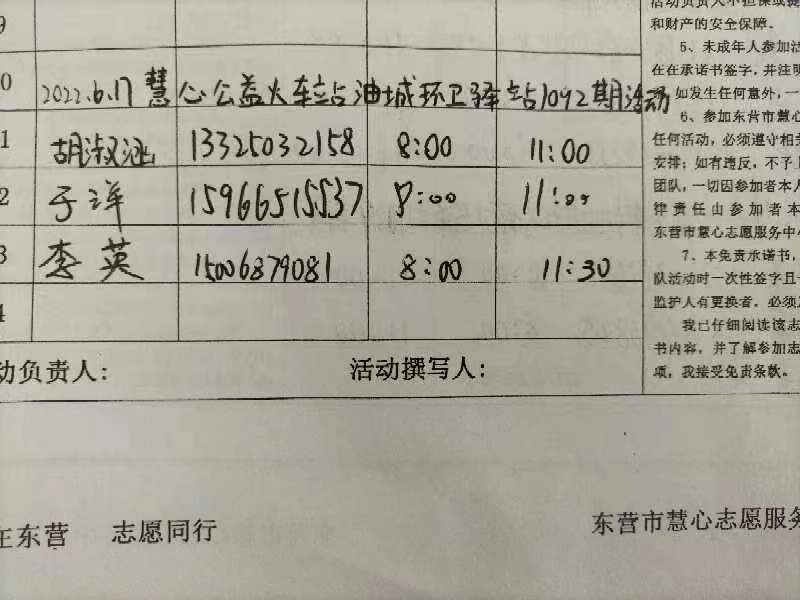 9
和财产的安全保障。
5、未成年人参加活
0 2022.6.17 慧心公益火车站油城环卫驿站1092期活动
在在承诺书签字，并注明
如发生任何意外，一
1 胡淑涵 13325032158 8:00 11:00
6、参加东营市慧心
任何活动，必须遵守相关
安排；如有违反，不予
2 于洋 15966515537 8:00 11:00
团队，一切因参加者本人
律责任由参加者本
东营市慧心志愿服务中心
3 李英 15006379081 8:00 11:30
7、本免责承诺书，
队活动时一次性签字且
监护人有更换者，必须
4
我已仔细阅读该志
书内容，并了解参加志
项，我接受免责条款。
动负责人： 活动撰写人：
在东营 志愿同行
东营市慧心志愿服务